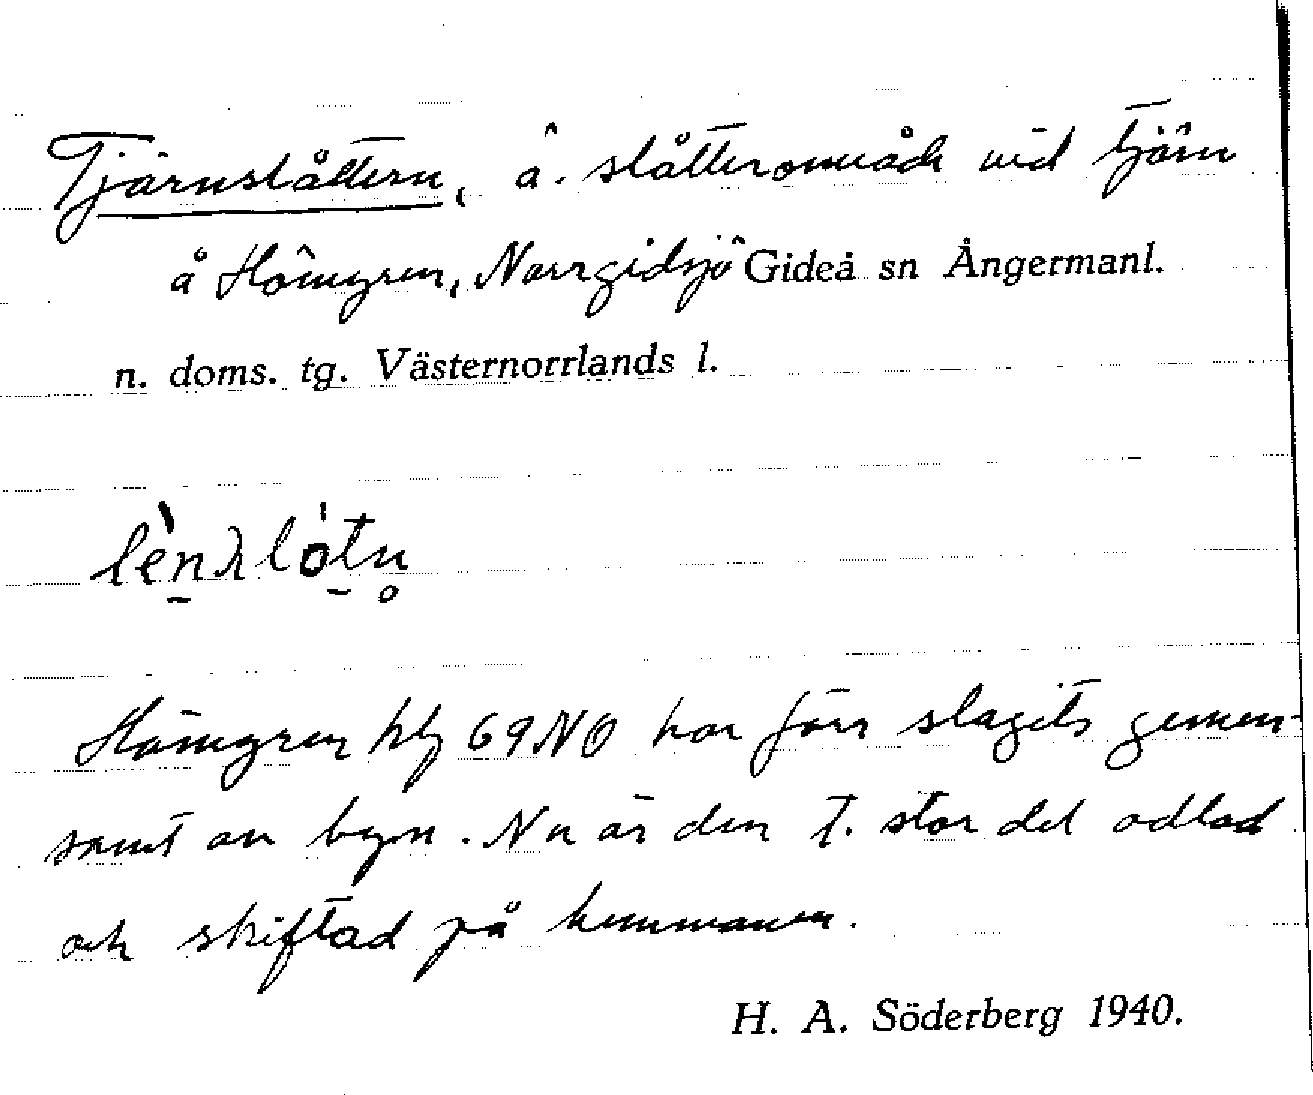 Tjärnslåttern, å. slåtterområde vid tjärn
å Hömyren, Norrgidsjö Gideå sn Ångermanl.
n. doms. tg. Västernorrlands l.
Hömyren hbg 69NO har förr slagits gemen-
samt av byn. Nu är den t. stor del odlad
och skiftad på hemmanen.
H. A. Söderberg 1940.